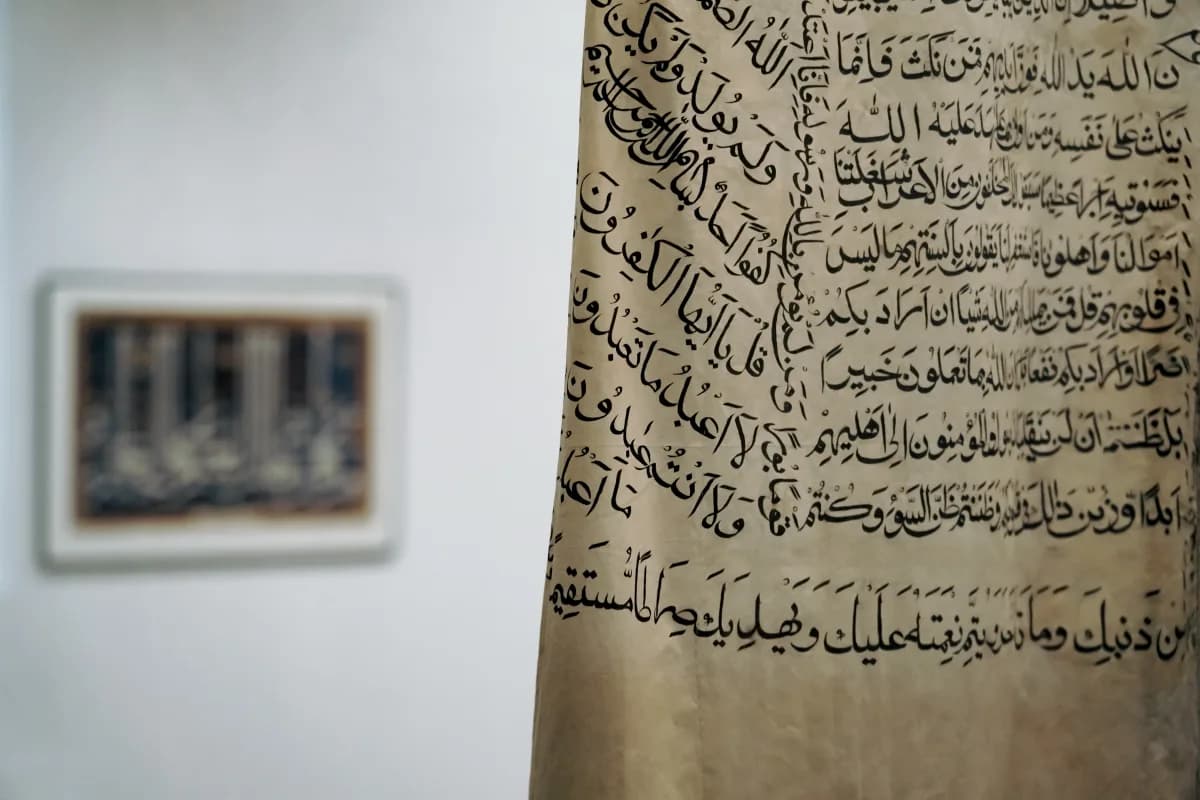 واصيلا ان الذين
ن الله يد الله فوق ايديهم فمن نكث فانما
ينكث على نفسه ومن اوفى عليه الله
فسنوتيه اجرا عظيما سيقول لك المخلفون من الاعراب شغلتنا
اموالنا واهلونا فاستغفر لنا يقولون بالسنتهم ما ليس
في قلوبهم قل فمن يملك من الله شيئا ان اراد بكم
ضرا او اراد بكم نفعا الله بما تعملون خبيرا
بل ظننتم ان لن ينقلب والمؤمنون الى اهليهم
ابدا وزين ذلك وظننتم ظن السوء وكنتم
قوما بورا
ومن لم يومن بالله ورسوله فانا اعتد
الله الصمد
ولم يولد ولم يكن
كفوا احد
قل يا ايها الكفرون
لا اعبد ما تعبدون
ولا انتم عبدون
ما اعبد
من ذنبك وما يتم نعمته عليك ويهديك صراطا مستقيما